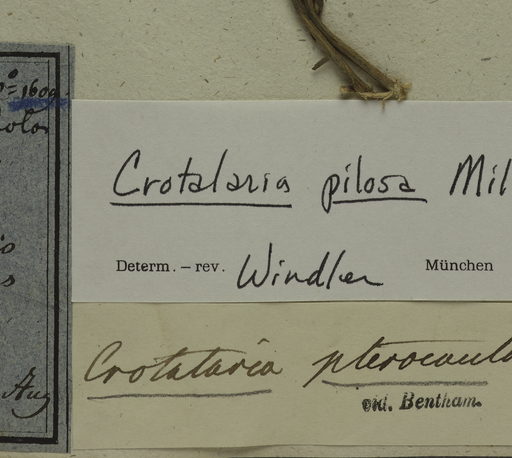 1609
Aug
Crotalaria pilosa Mil
Determ. – rev. Windler München
Crotalaria pterocaula
Bentham.